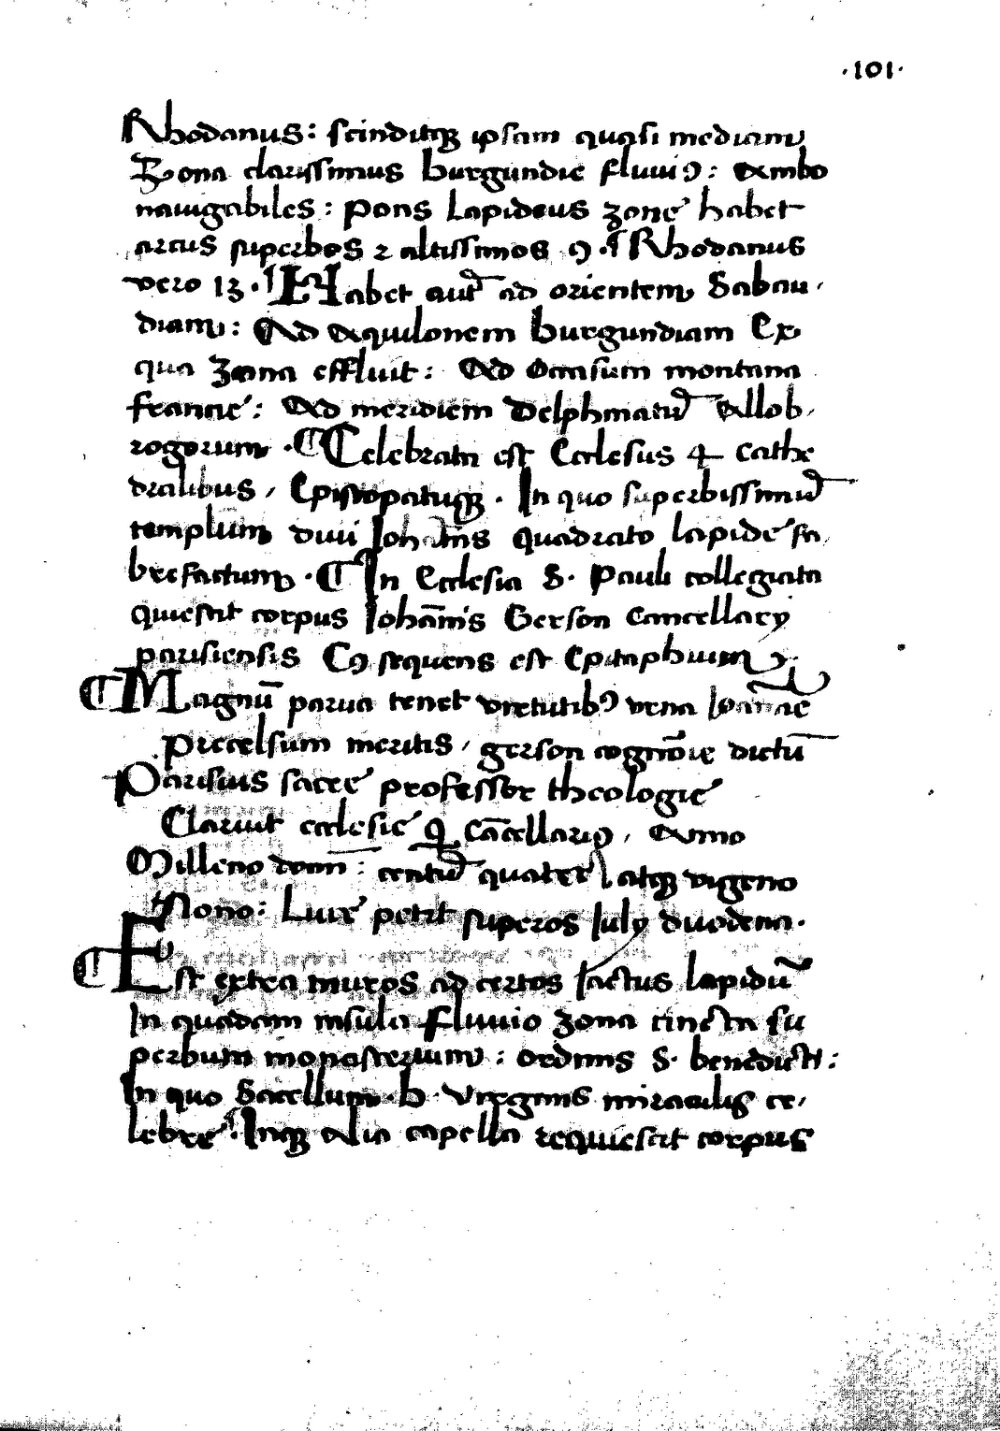 ·101·
Rhodanus: scinditqꝫ ipsam quasi mediam
Zona clarissimus burgundie fluuiꝰ: ambo
nauigabiles: pons lapideus zone habet
arcus superbos ⁊ altissimos 9 ·¶ Rhodanus
vero 13 ·¶ Habet aut̄ ad orientem Sabau,
diam: Ad aquilonem burgundiam Ex
qua zona effluit: Ad occasum montana
francie: Ad meridiem Delphinatū Allob,
rogorum ·¶ Celebrata est Ecclesus cathe
dralibus, Episcopatuqꝫ · In quo superbissimū
templum diui Johānis quadrato lapide fa,
brefactum ·¶ In Ecclesia S· Pauli collegiata
quiescit corpus Johānis Gerson Cancellarij
parisiensis Cꝰ sequens est Epitaphium
¶ Magnū parua tenet virtutibꝰ vrna
precelsum meritis, gerson cognōīe dictū
Parisius sacre professor theologie
Claruit ecclesie q̄ cācellariꝰ, anno
Milleno domī: centū quater atqꝫ vigeno
Nono: Luce petit superos July duodena·
¶ Est extra muros ad certos Jactus lapidū
In quadam insula fluuio zona cincta su
perbum monasterium: ordinis S· benedicti:
In quo Sacellum · b· virginis miraculis ce,
lebre ·¶ Inqꝫ alia capella requiescit corpus